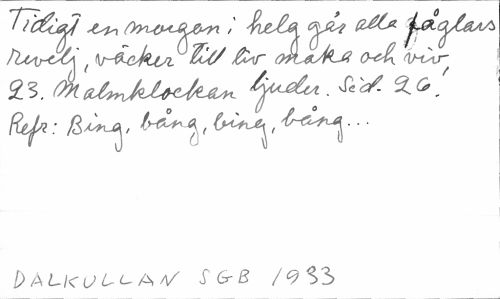 Tidigt en morgon i helg går alla fåglars
revelj, väcker till liv maka och viv,
23. Malmklockan ljuder. Sid. 26!
Refr: Bing, bång, bing, bång...
DALKULLAN SGB 1933